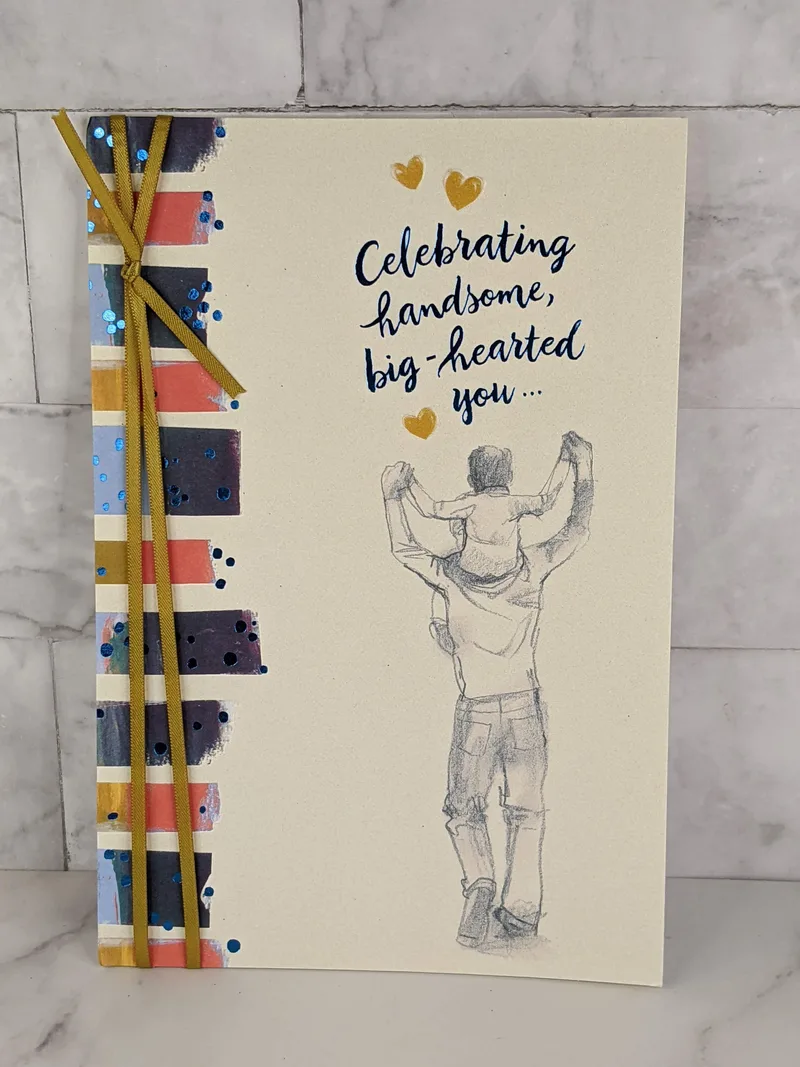 Celebrating
handsome,
big-hearted
you...